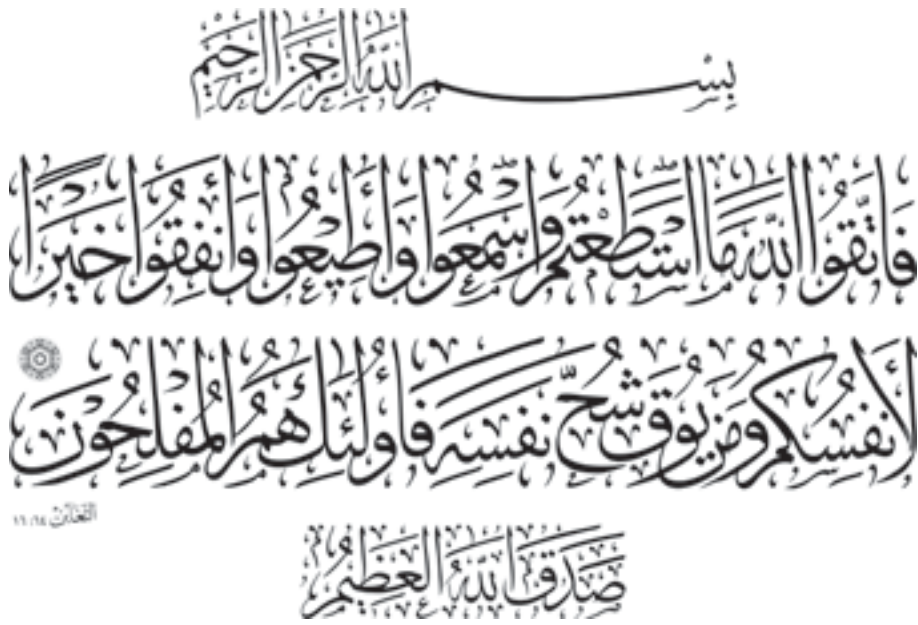 بِسْمِ اللَّهِ الرَّحْمَنِ الرَّحِيمِ
فَاتَّقُوا اللَّهَ مَا اسْتَطَعْتُمْ وَاسْمَعُوا وَأَطِيعُوا وَأَنْفِقُوا خَيْرًا
لِأَنْفُسِكُمْ وَمَنْ يُوقَ شُحَّ نَفْسِهِ فَأُولَئِكَ هُمُ الْمُفْلِحُونَ
التَّغَابُن ١٦/٦٤
صَدَقَ اللَّهُ الْعَظِيمُ